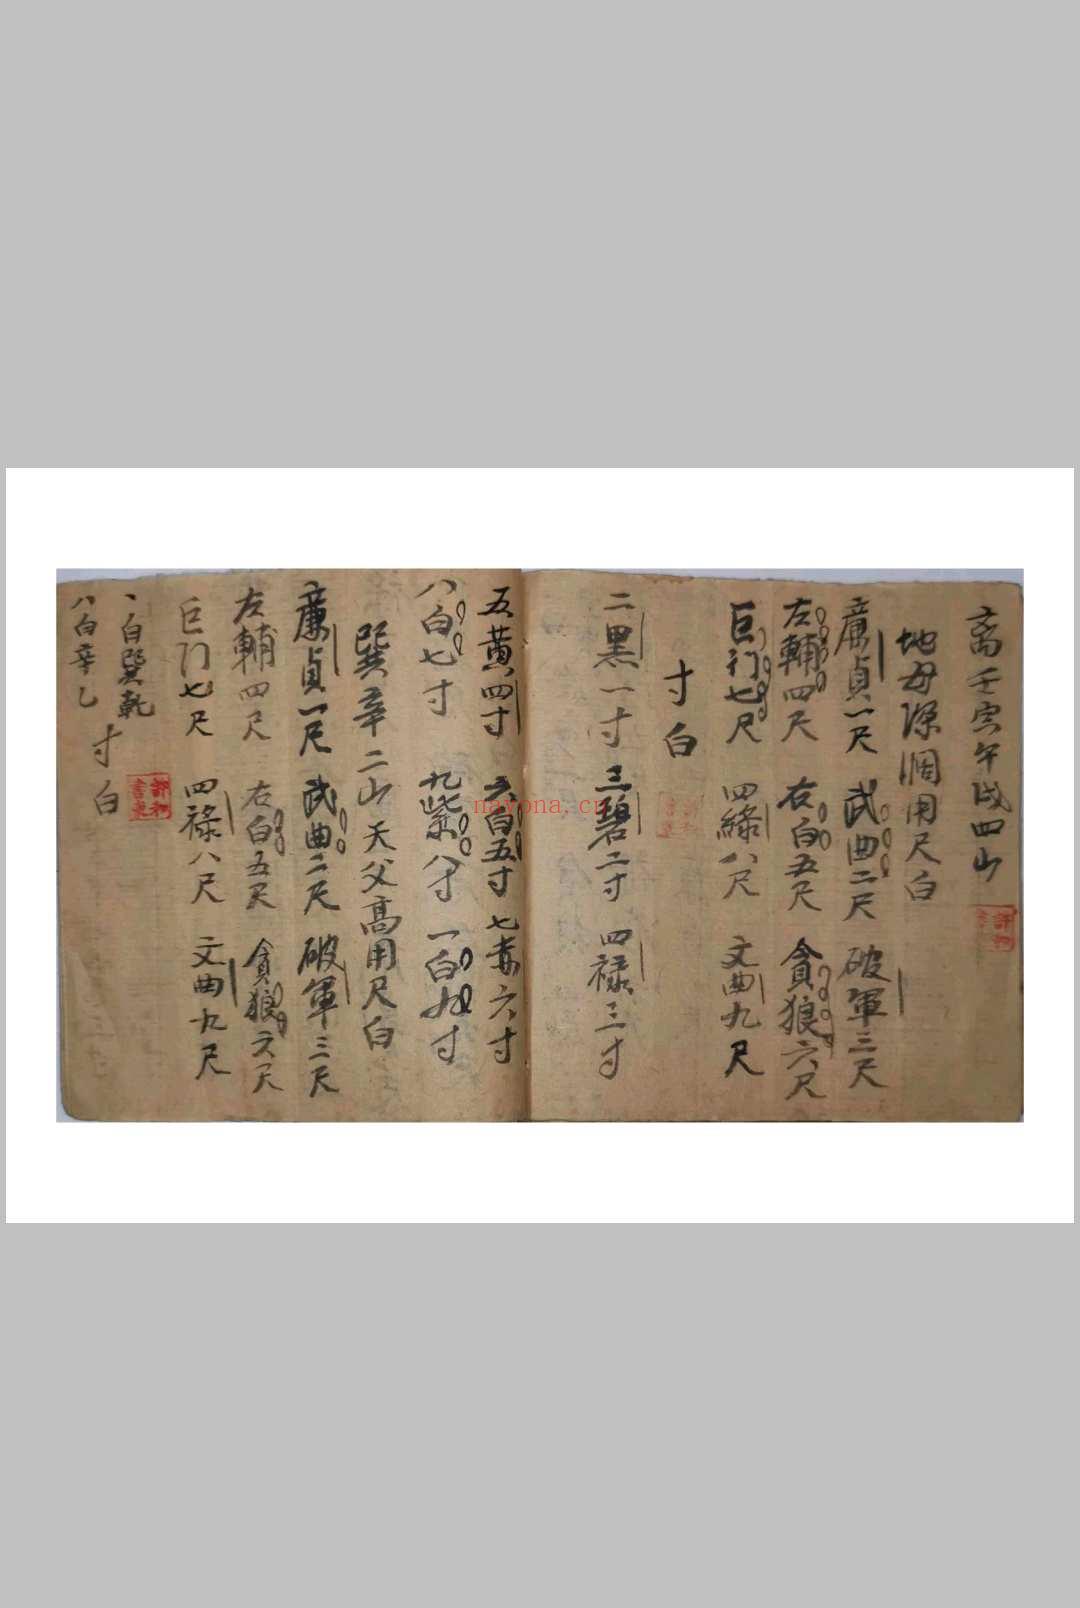 离壬寅午戌四山
地母深濶用尺白
廉貞一尺 武曲二尺 破軍三尺
左輔四尺 右白五尺 貪狼六尺
巨门七尺 四綠八尺 文曲九尺
寸白
二黑一寸 三碧二寸 四禄三寸
五黄四寸 六白五寸 七赤六寸
八白七寸 九紫八寸 一白九寸
巽辛二山天父高用尺白
廉貞一尺 武曲二尺 破軍三尺
左輔四尺 右白五尺 貪狼六尺
巨门七尺 四禄八尺 文曲九尺
一白巽乾
寸白
八白辛乙
nayona.cn